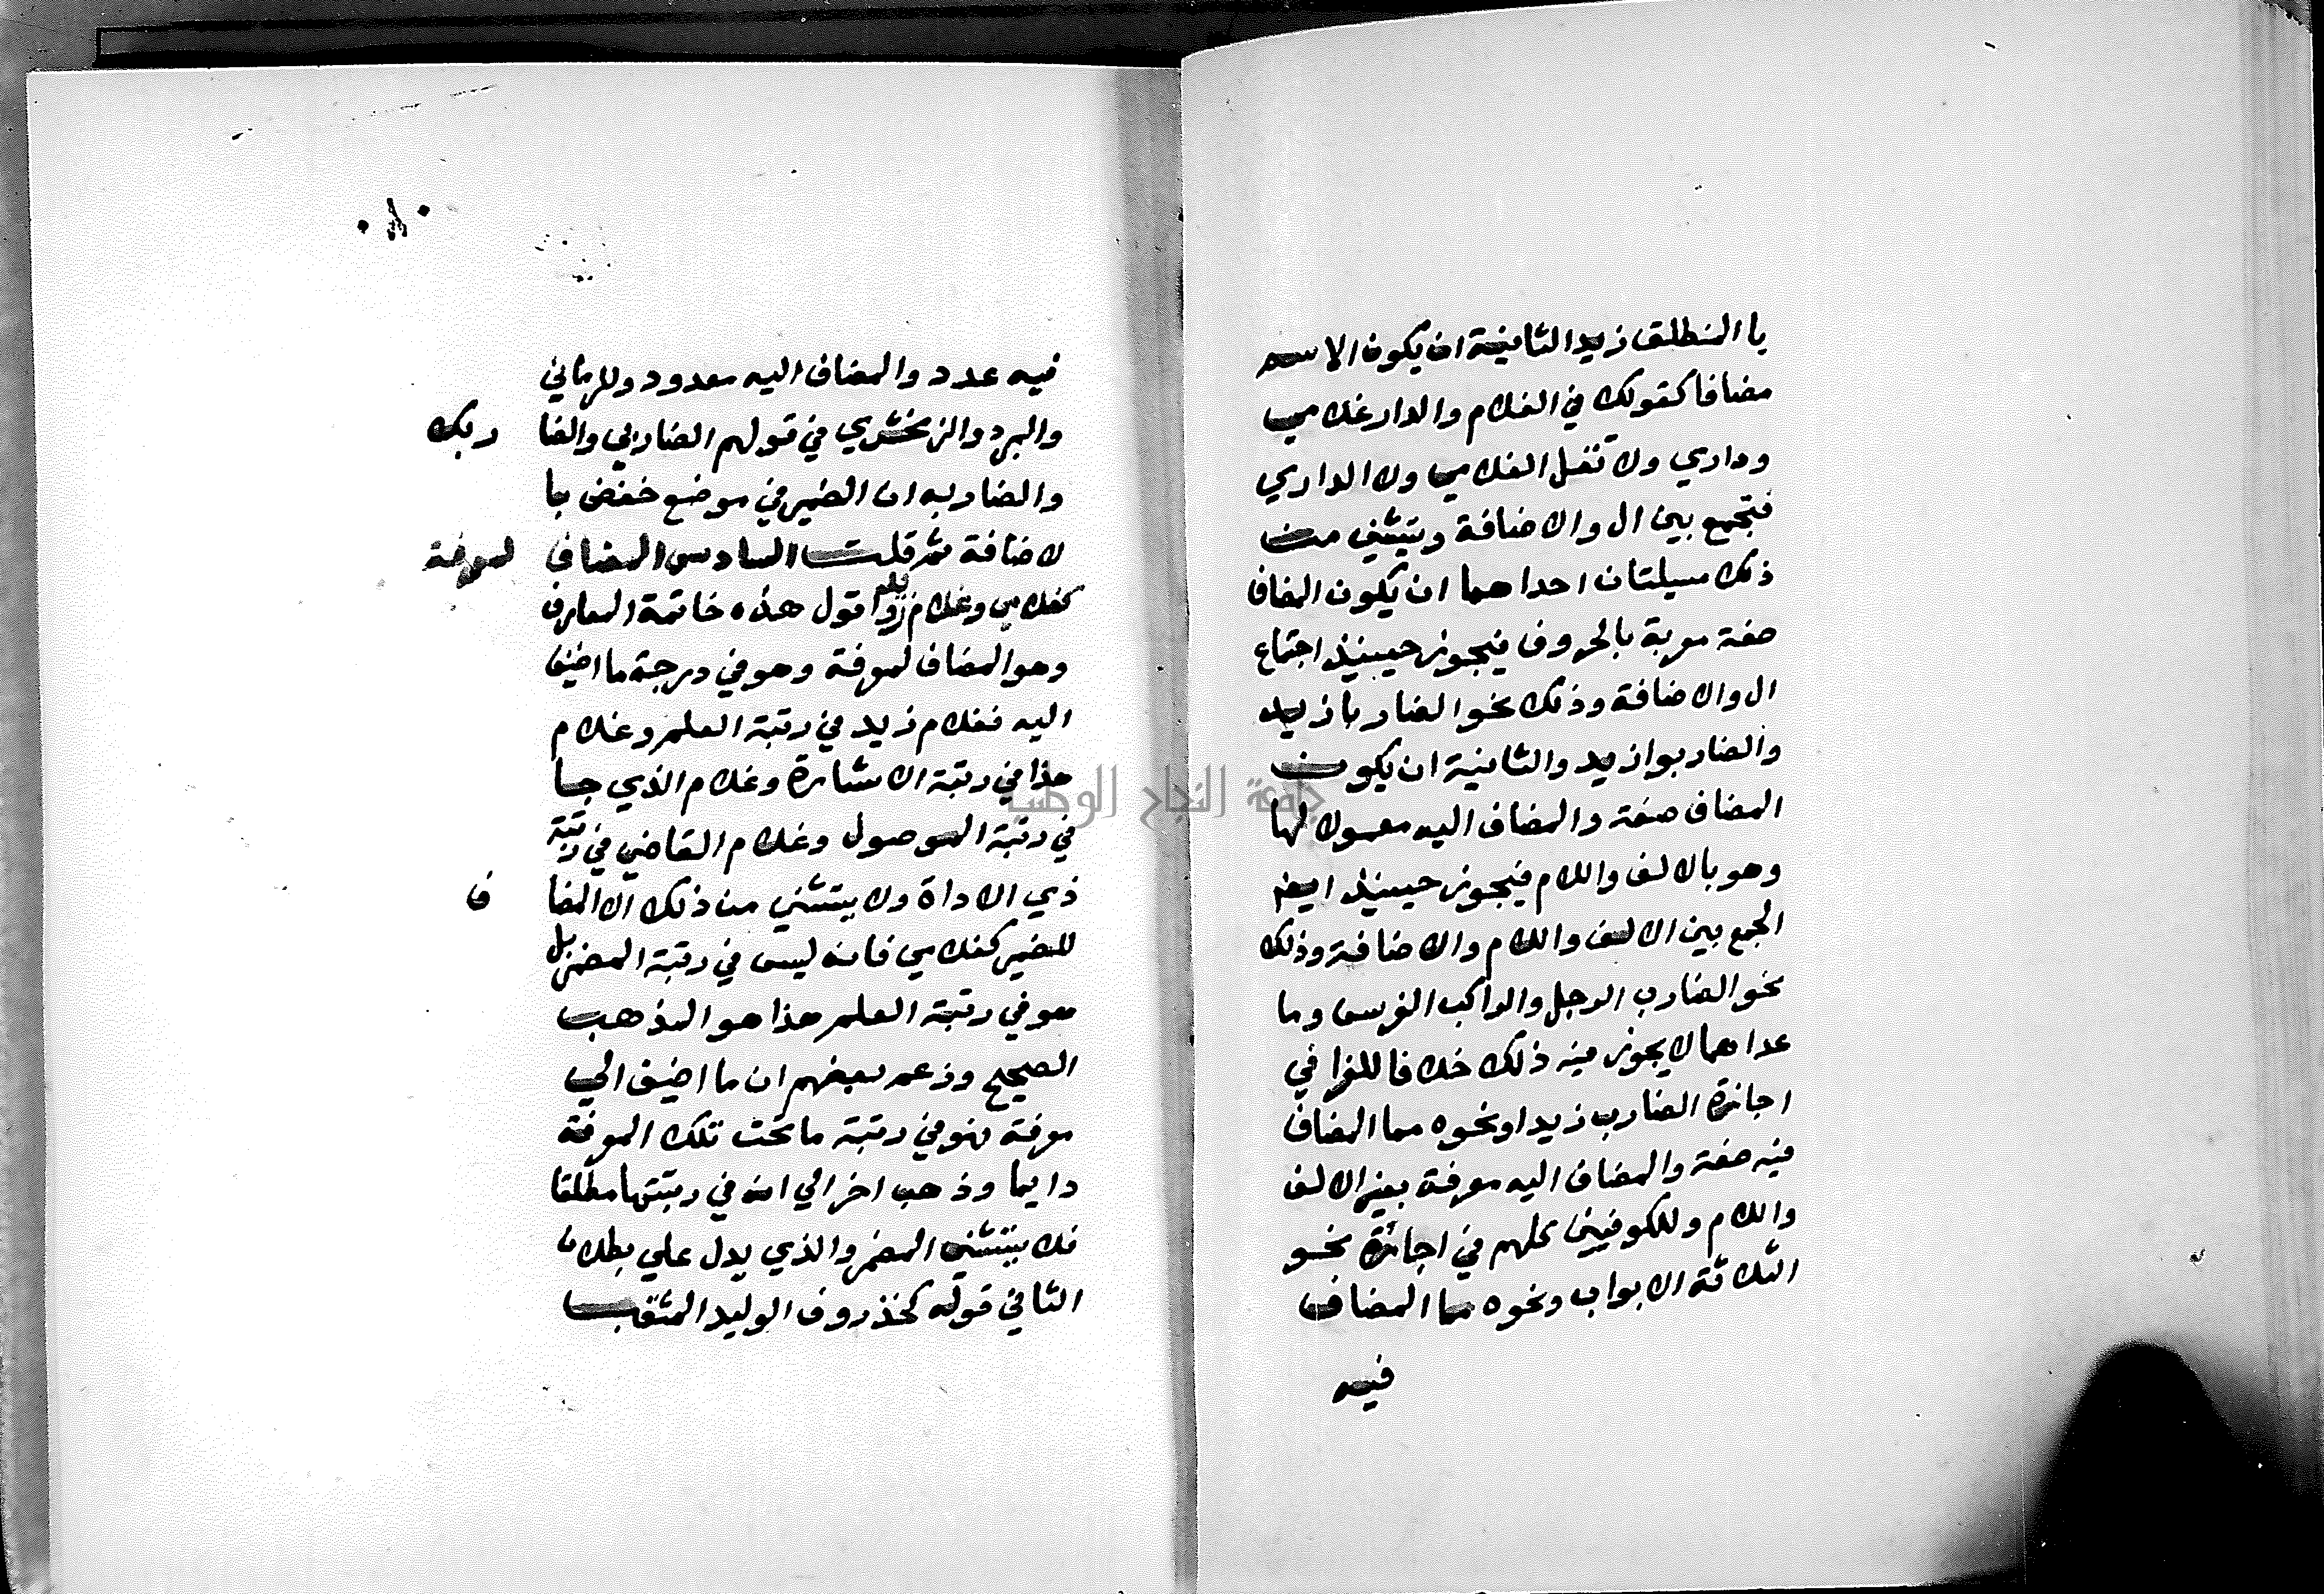 يا المنطلق زيد الثانية ان يكون الاسم
مضافا كقولك في الغلام والدار غلامي
وداري ولا تقل الغلامي ولا الداري
فتجمع بين ال والاضافة ويستثني من
ذلك مسيلتان احداهما ان يكون المضاف
صفة معربة بالحروف فيجوز حينيذ اجتماع
ال والاضافة وذلك نحو الضاربا زيد
والضاربوا زيد والثانية ان يكون
المضاف صفة والمضاف اليه معمولا لها
وهو بالالف واللام فيجوز حينيذ ايضا
الجمع بين الالف واللام والاضافة وذلك
نحو الضارب الرجل والراكب الفرس وما
عداهما لا يجوز فيه ذلك خلافا للفرا في
اجازة الضارب زيد او نحوه مما المضاف
فيه صفة والمضاف اليه معرفة بغير الالف
واللام وللكوفيين كلهم في اجازة نحو
الثلاثة الابواب ونحوه مما المضاف
فيه
فيه عدد والمضاف اليه معدود وللرماني
والمبرد والزمخشري في قولهم الضاربي والضا ربك
والضاربه ان الضمير في موضع خفض با
لاضافة ثم قلت السادس المضاف لمعرفة
كغلامي وغلام زيد اقول هذه خاتمة المعارف
وهو المضاف لمعرفة وهو في درجة ما اضيف
اليه فغلام زيد في رتبة العلم وغلام
هذا في رتبة الاشارة وغلام الذي جا
في رتبة الموصول وغلام القاضي في رتبة
ذي الاداة ولا يستثني من ذلك الا المضا ف
للضمير كغلامي فانه ليس في رتبة المضمر بل
هو في رتبة العلم هذا هو المذهب
الصحيح وزعم بعضهم ان ما اضيف الي
معرفة فهو في رتبة ما تحت تلك المعرفة
دايما وذهب اخر الي انه في رتبتها مطلقا
فلا يستثني المضمر والذي يدل علي بطلان
الثاني قوله كخذروف الوليد المثقب
جامعة النجاح الوطنية